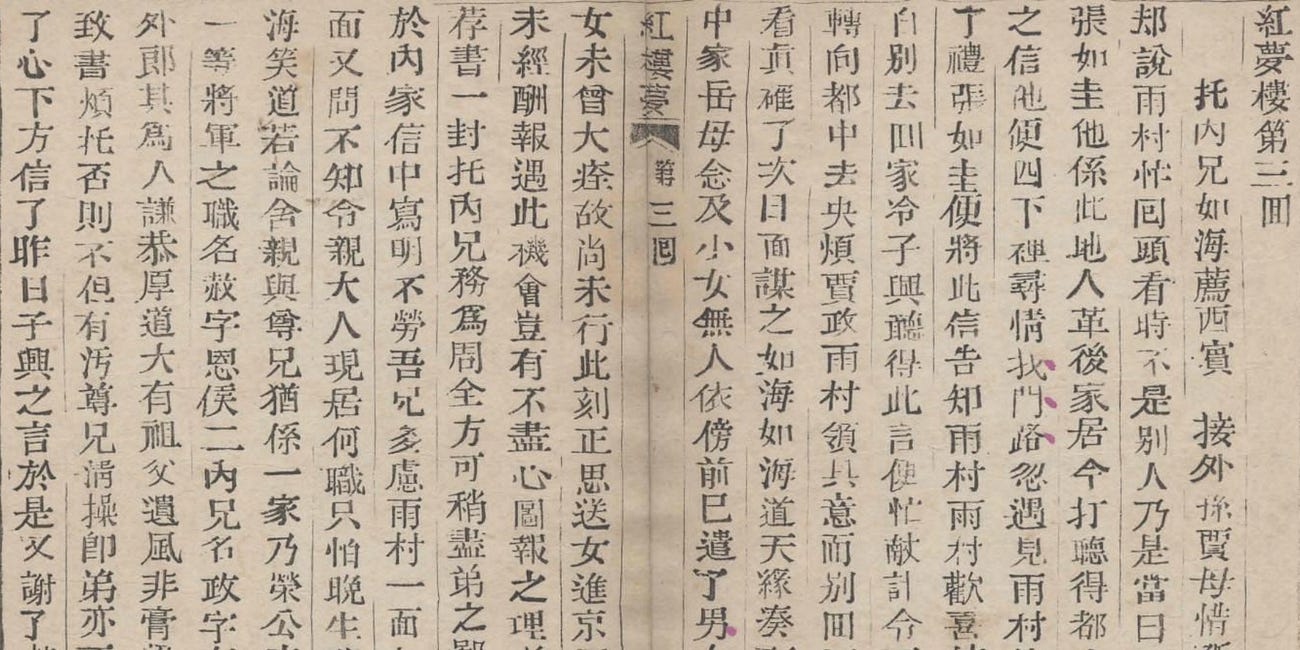 紅夢樓第三囬
托内兄如海薦西賓 接外孫賈母惜
却說雨村忙囘頭看時不是别人乃是當日
張如圭他係此地人革後家居今打聽得都
之信他便四下裡尋情找門路忽遇見雨村
了禮張如圭便將此信告知雨村雨村歡喜
自别去囬家冷子興聽得此言便忙献計令
轉向都中去央煩賈政雨村領其意而别囬
看真確了次日面謀之如海如海道天緣凑
中家岳母念及小女無人依傍前已遣了男
紅樓夢 第三囘
女未曾大痊故尚未行此刻正思送女進京
未經酬報遇此機會豈有不盡心圖報之理
荐書一封托内兄務爲周全方可稍盡弟之
於内家信中寫明不勞吾兄多慮雨村一面
面又問不知令親大人現居何職只怕晚生
海笑道若論舍親與尊兄猶係一家乃榮公
一等將軍之職名赦字恩侯二内兄名政字
外郎其爲人謙恭厚道大有祖父遺風非膏
致書煩托否則不但有汚尊兄清操卽弟亦
了心下方信了昨日子興之言於是又謝了